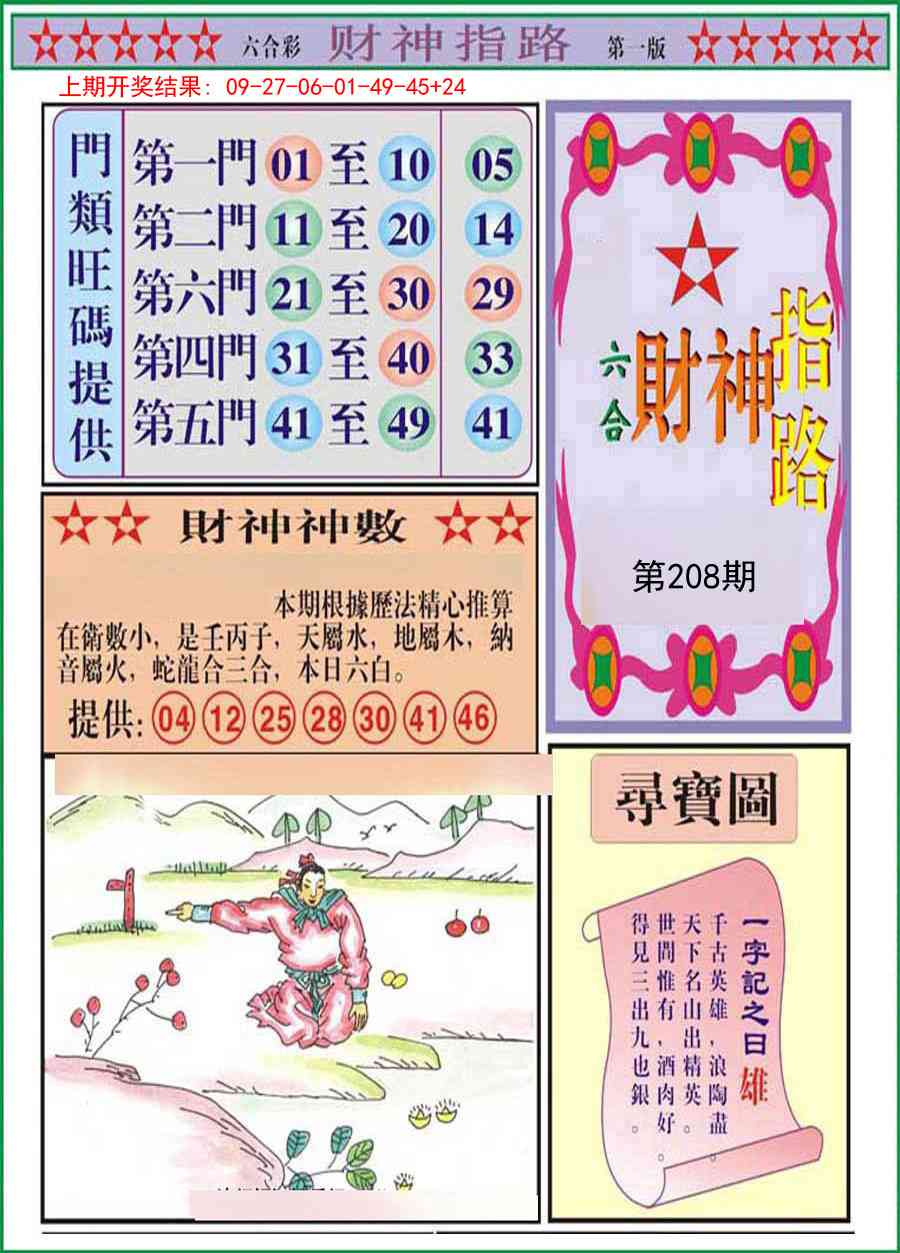 六合彩 财神指路 第一版
上期开奖结果: 09-27-06-01-49-45+24
門類旺碼提供
第一門 01 至 10 05
第二門 11 至 20 14
第六門 21 至 30 29
第四門 31 至 40 33
第五門 41 至 49 41
六合 財神 指路
第208期
財神神數
本期根據歷法精心推算
在衛數小，是壬丙子，天屬水，地屬木，納
音屬火，蛇龍合三合，本日六白。
提供: 04 12 25 28 30 41 46
尋寶圖
一字記之日 雄
千古英雄，浪陶盡。
天下名山出，精英。
世間惟有，酒肉好。
得見三出九也銀。